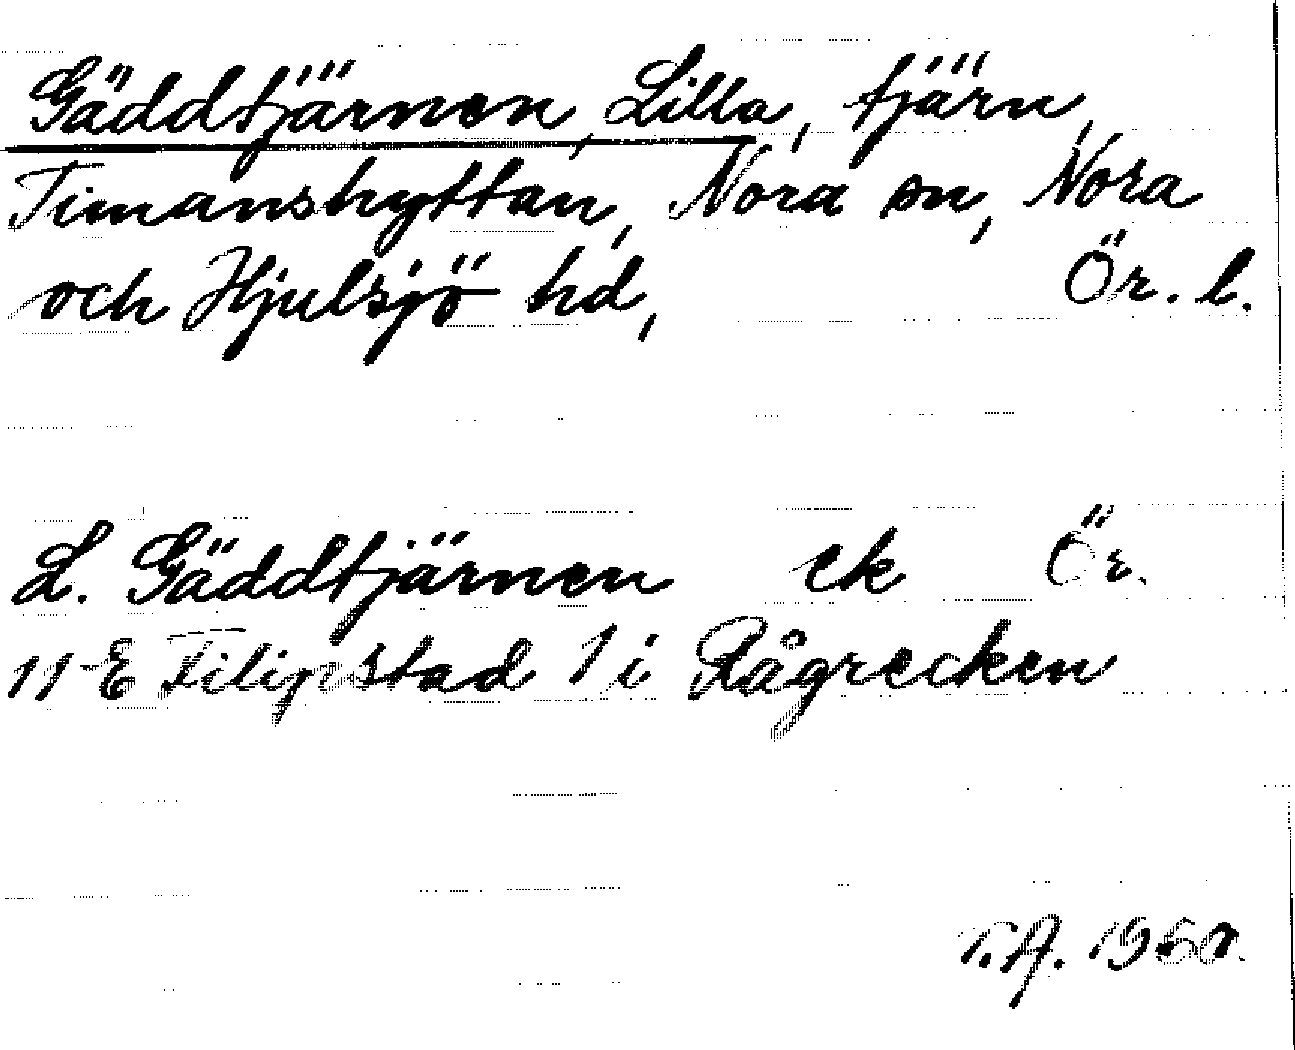 Gäddtjärnen, Lilla, tjärn,
Timanshyttan, Nora sn, Nora
och Hjulsjö hd, Ör. l.
L. Gäddtjärnen ek Ör.
11 E Filipstad 1 i Rågrecken
T.A. 1960.